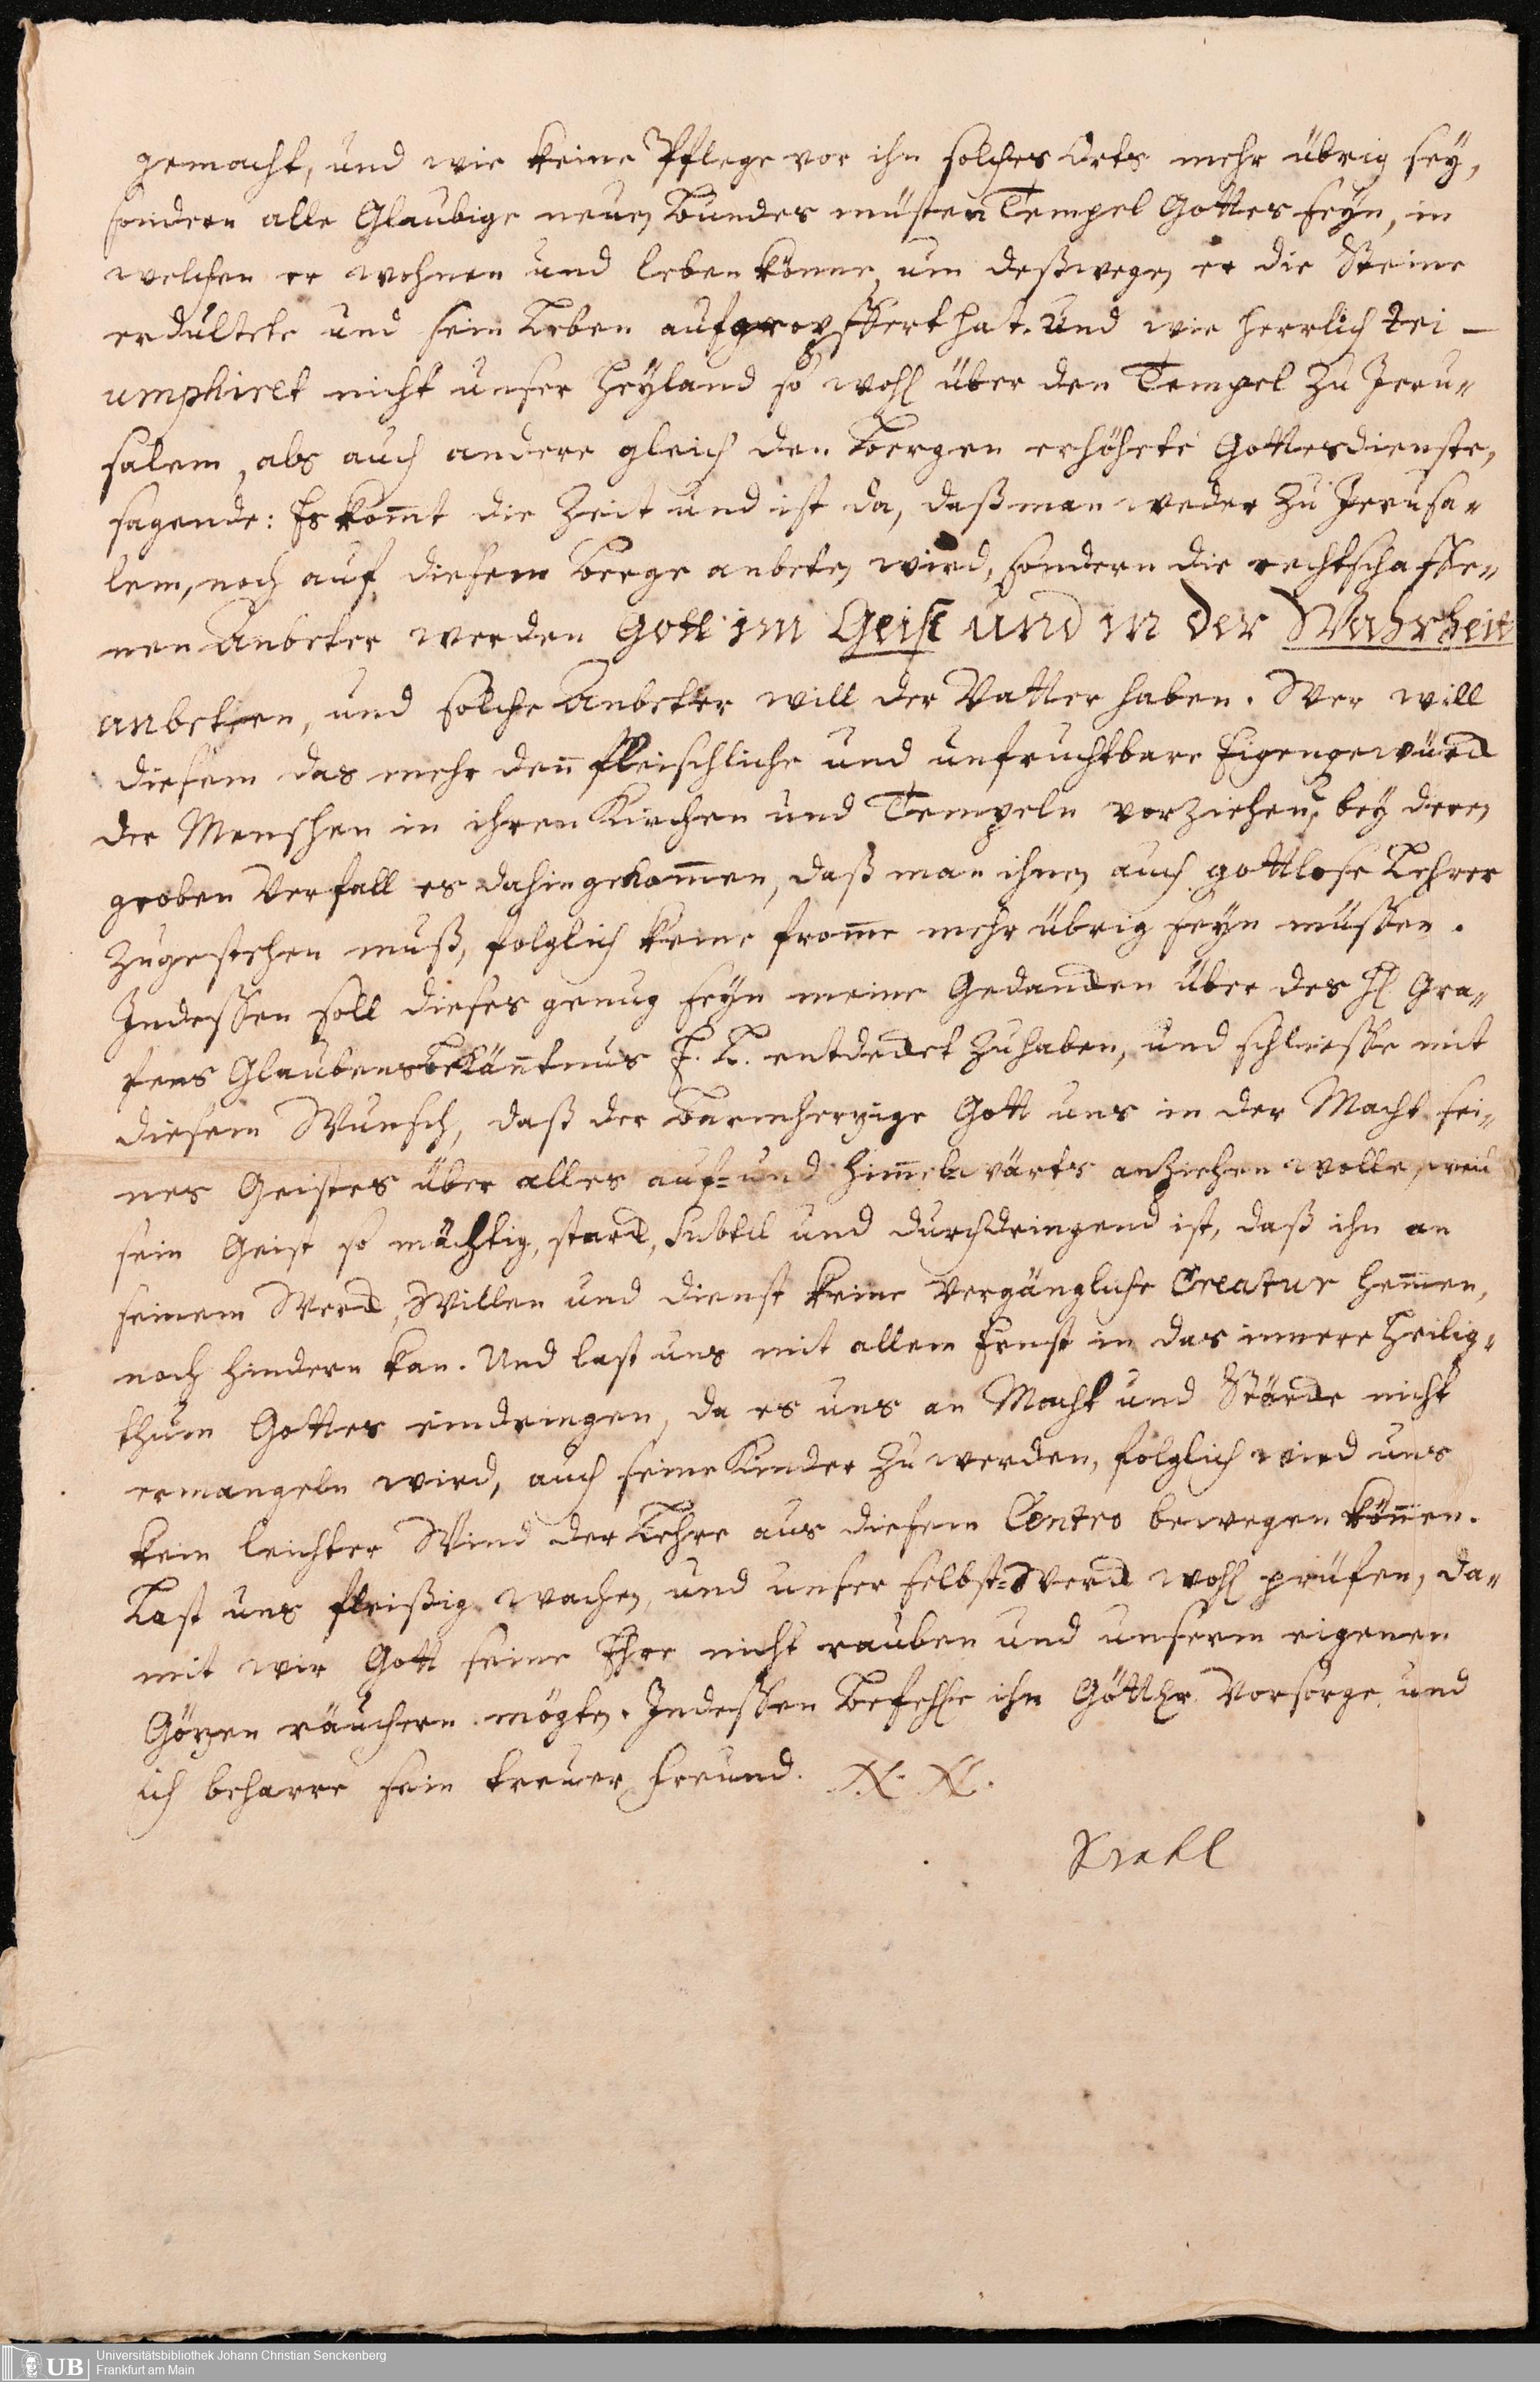 gemacht, und wie keine Pflege vor ihn solches Orts mehr übrig sey,
sondern alle Glaubige neuen Bundes müsten Tempel Gottes seyn, in
welchen er wohnen und leben könne, um deßwegen er die Steine
erdultete und sein Leben aufgeopffert hat. Und wie herrlich tri-
umphiret nicht unser Heyland so wohl über den Tempel zu Jeru-
salem, als auch andere gleich den Bergen erhöhete Gottesdienste,
sagende: Es kom̄t die Zeit und ist da, daß man weder zu Jerusa-
lem, noch auf diesem Berge anbeten wird, sondern die rechtschaffe-
nen Anbeter werden Gott im Geist und in der Wahrheit
anbeten, und solche Anbeter will der Vatter haben. Wer will
diesem das mehr den̄ fleischliche und unfruchtbare
der Menschen in ihren Kirchen und Tempeln vorziehen, bey deren
groben Verfall es dahin gekom̄en, daß man ihnen auch gottlose Lehrer
zugestehen muß, folglich keine from̄e mehr übrig seyn müssen.
Indessen soll dieses genug seyn meine Gedancken über des H Gra-
fens Glaubensbekän̄tnus E. L. entdeckt zu haben, und schliesse mit
diesem Wunsch, daß der barmherzige Gott uns in der Macht sei-
nes Geistes über alles auf- und him̄elwärts anziehen wolle, weil
sein Geist so mächtig, starck, subtil und durchdringend ist, daß ihn an
seinem Werck, Willen und Dienst keine vergängliche Creatur hem̄en,
noch hindern kan. Und last uns mit allem Ernst in das innere Heilig-
thum Gottes eindringen, da es uns an Macht und Stärcke nicht
ermangeln wird, auch seine Kinder zu werden, folglich wird uns
kein leichter Wind der Lehre aus diesem Centro bewegen kön̄en.
Last uns fleißig wachen, und unser selbst-Werck wohl prüfen, da-
mit wir Gott seine Ehre nicht rauben und unserm eigenen
Götzen räuchern mögten. Indessen befehle ihn Göttlr Vorsorge und
ich beharre sein treuer Freund. N. N.
Krahl
UB
Universitätsbibliothek Johann Christian Senckenberg
Frankfurt am Main